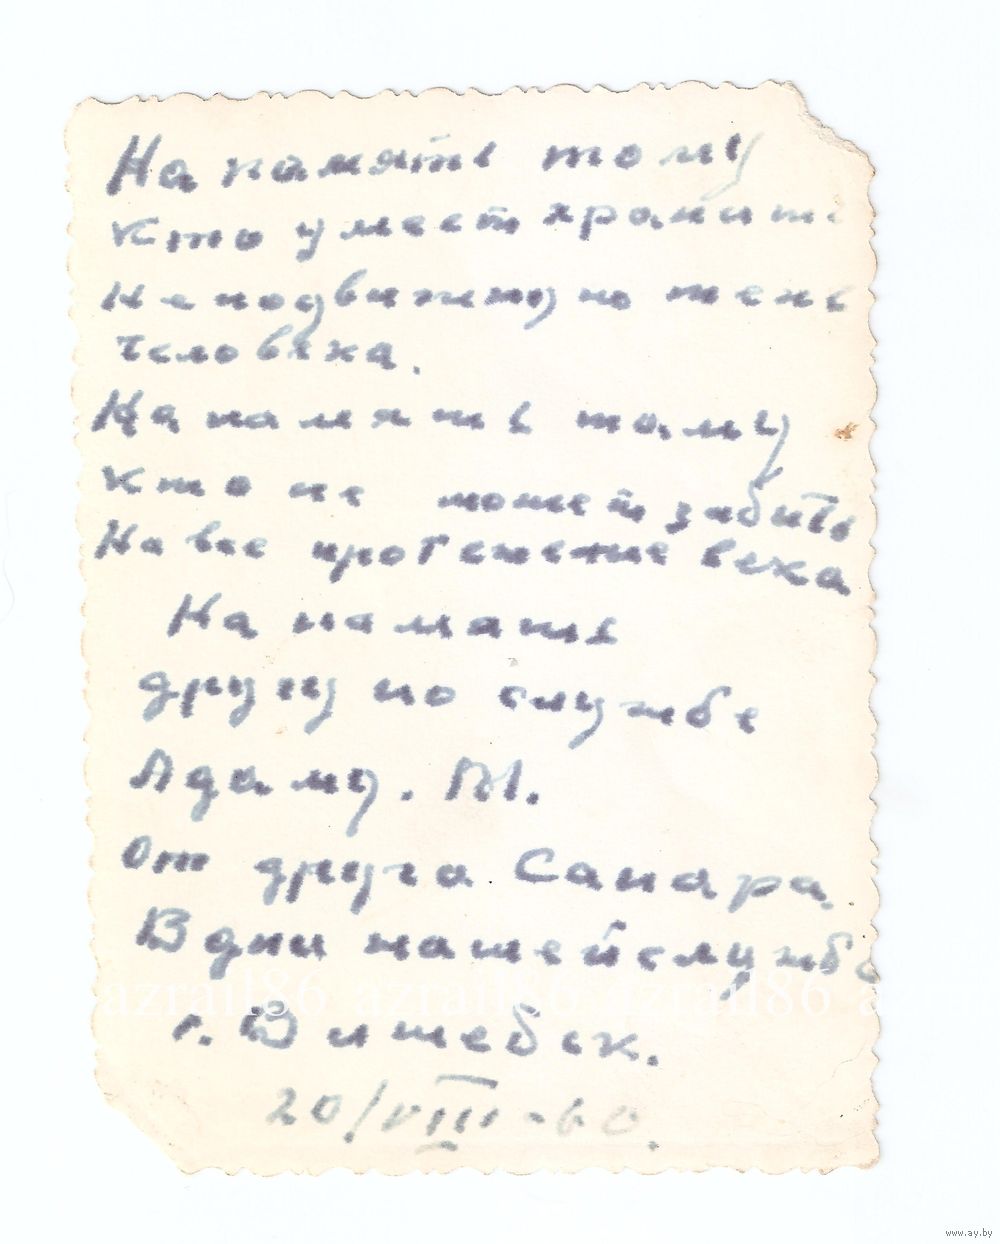 На память тому
кто умеет хранить
неподвижную тень
человека.
На память тому
кто не может забить
На все протежение века
На память
другу по службе
Адаму. М.
От друга Сапара.
В дни нашей службе
г. Витебск.
20/VIII-60.
azrail86 azrail86 azrail86
www.ay.by